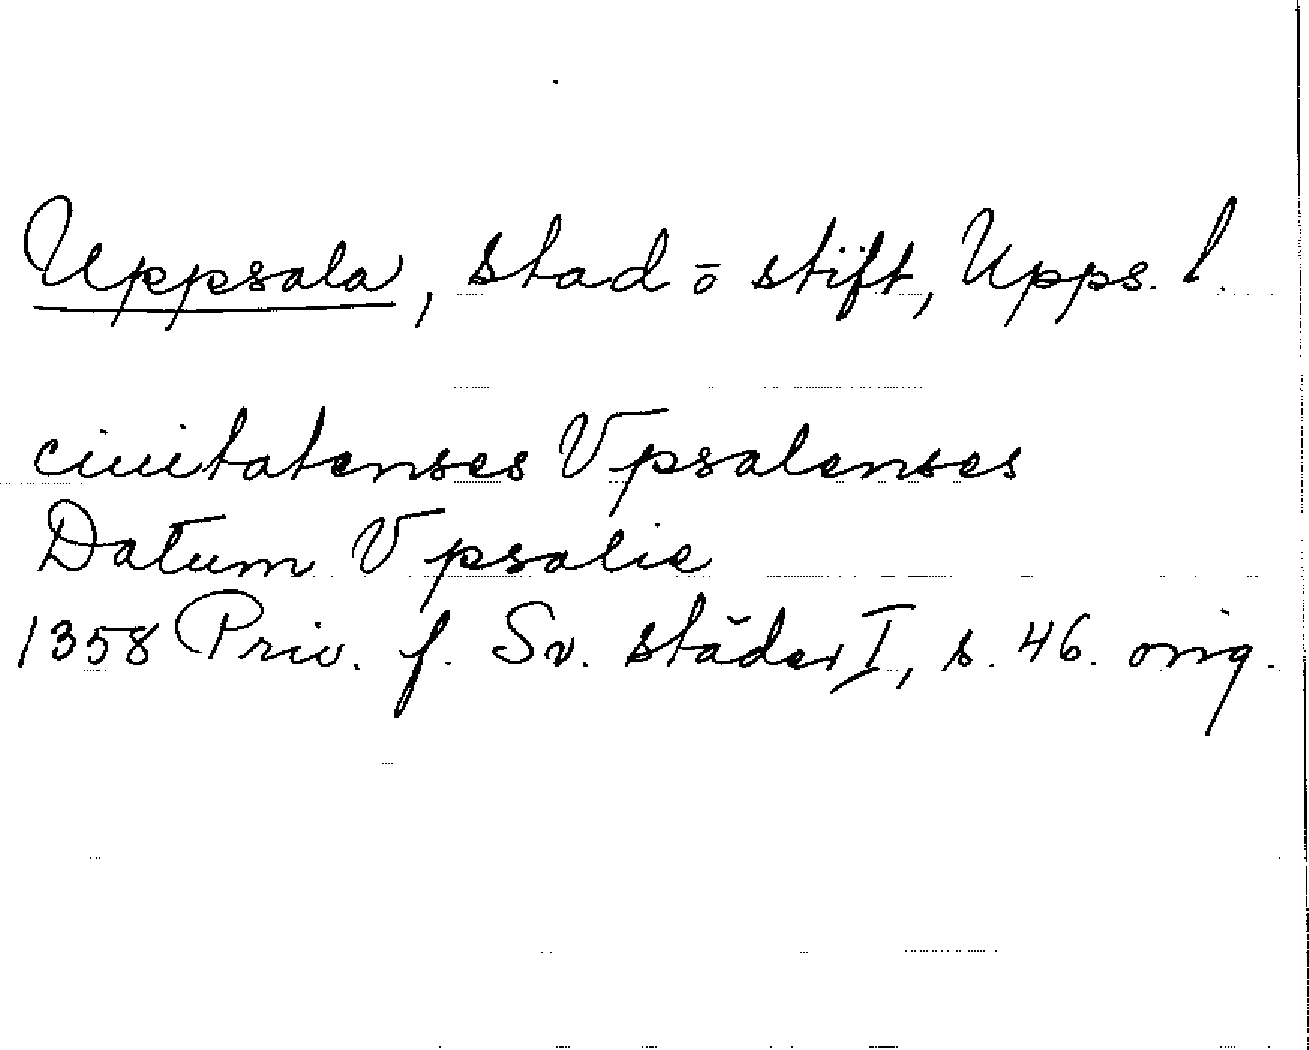 Uppsala, stad ō stift, Upps. l.
ciuitatenses Vpsalenses
Datum Vpsalie
1358 Priv. f. Sv. städer I, s. 46. orig.